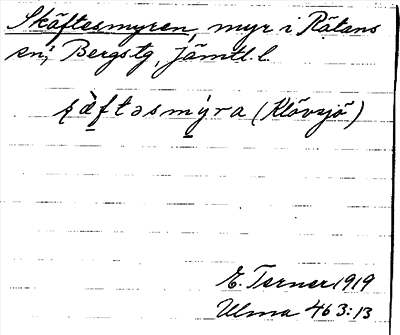 Skäftesmyren, myr i Rätans
sn, Bergs tg, Jämtl. l.
ʂæ̀ftəsmýra (Klövsjö)
E. Terner 1919
Ulma 463:13